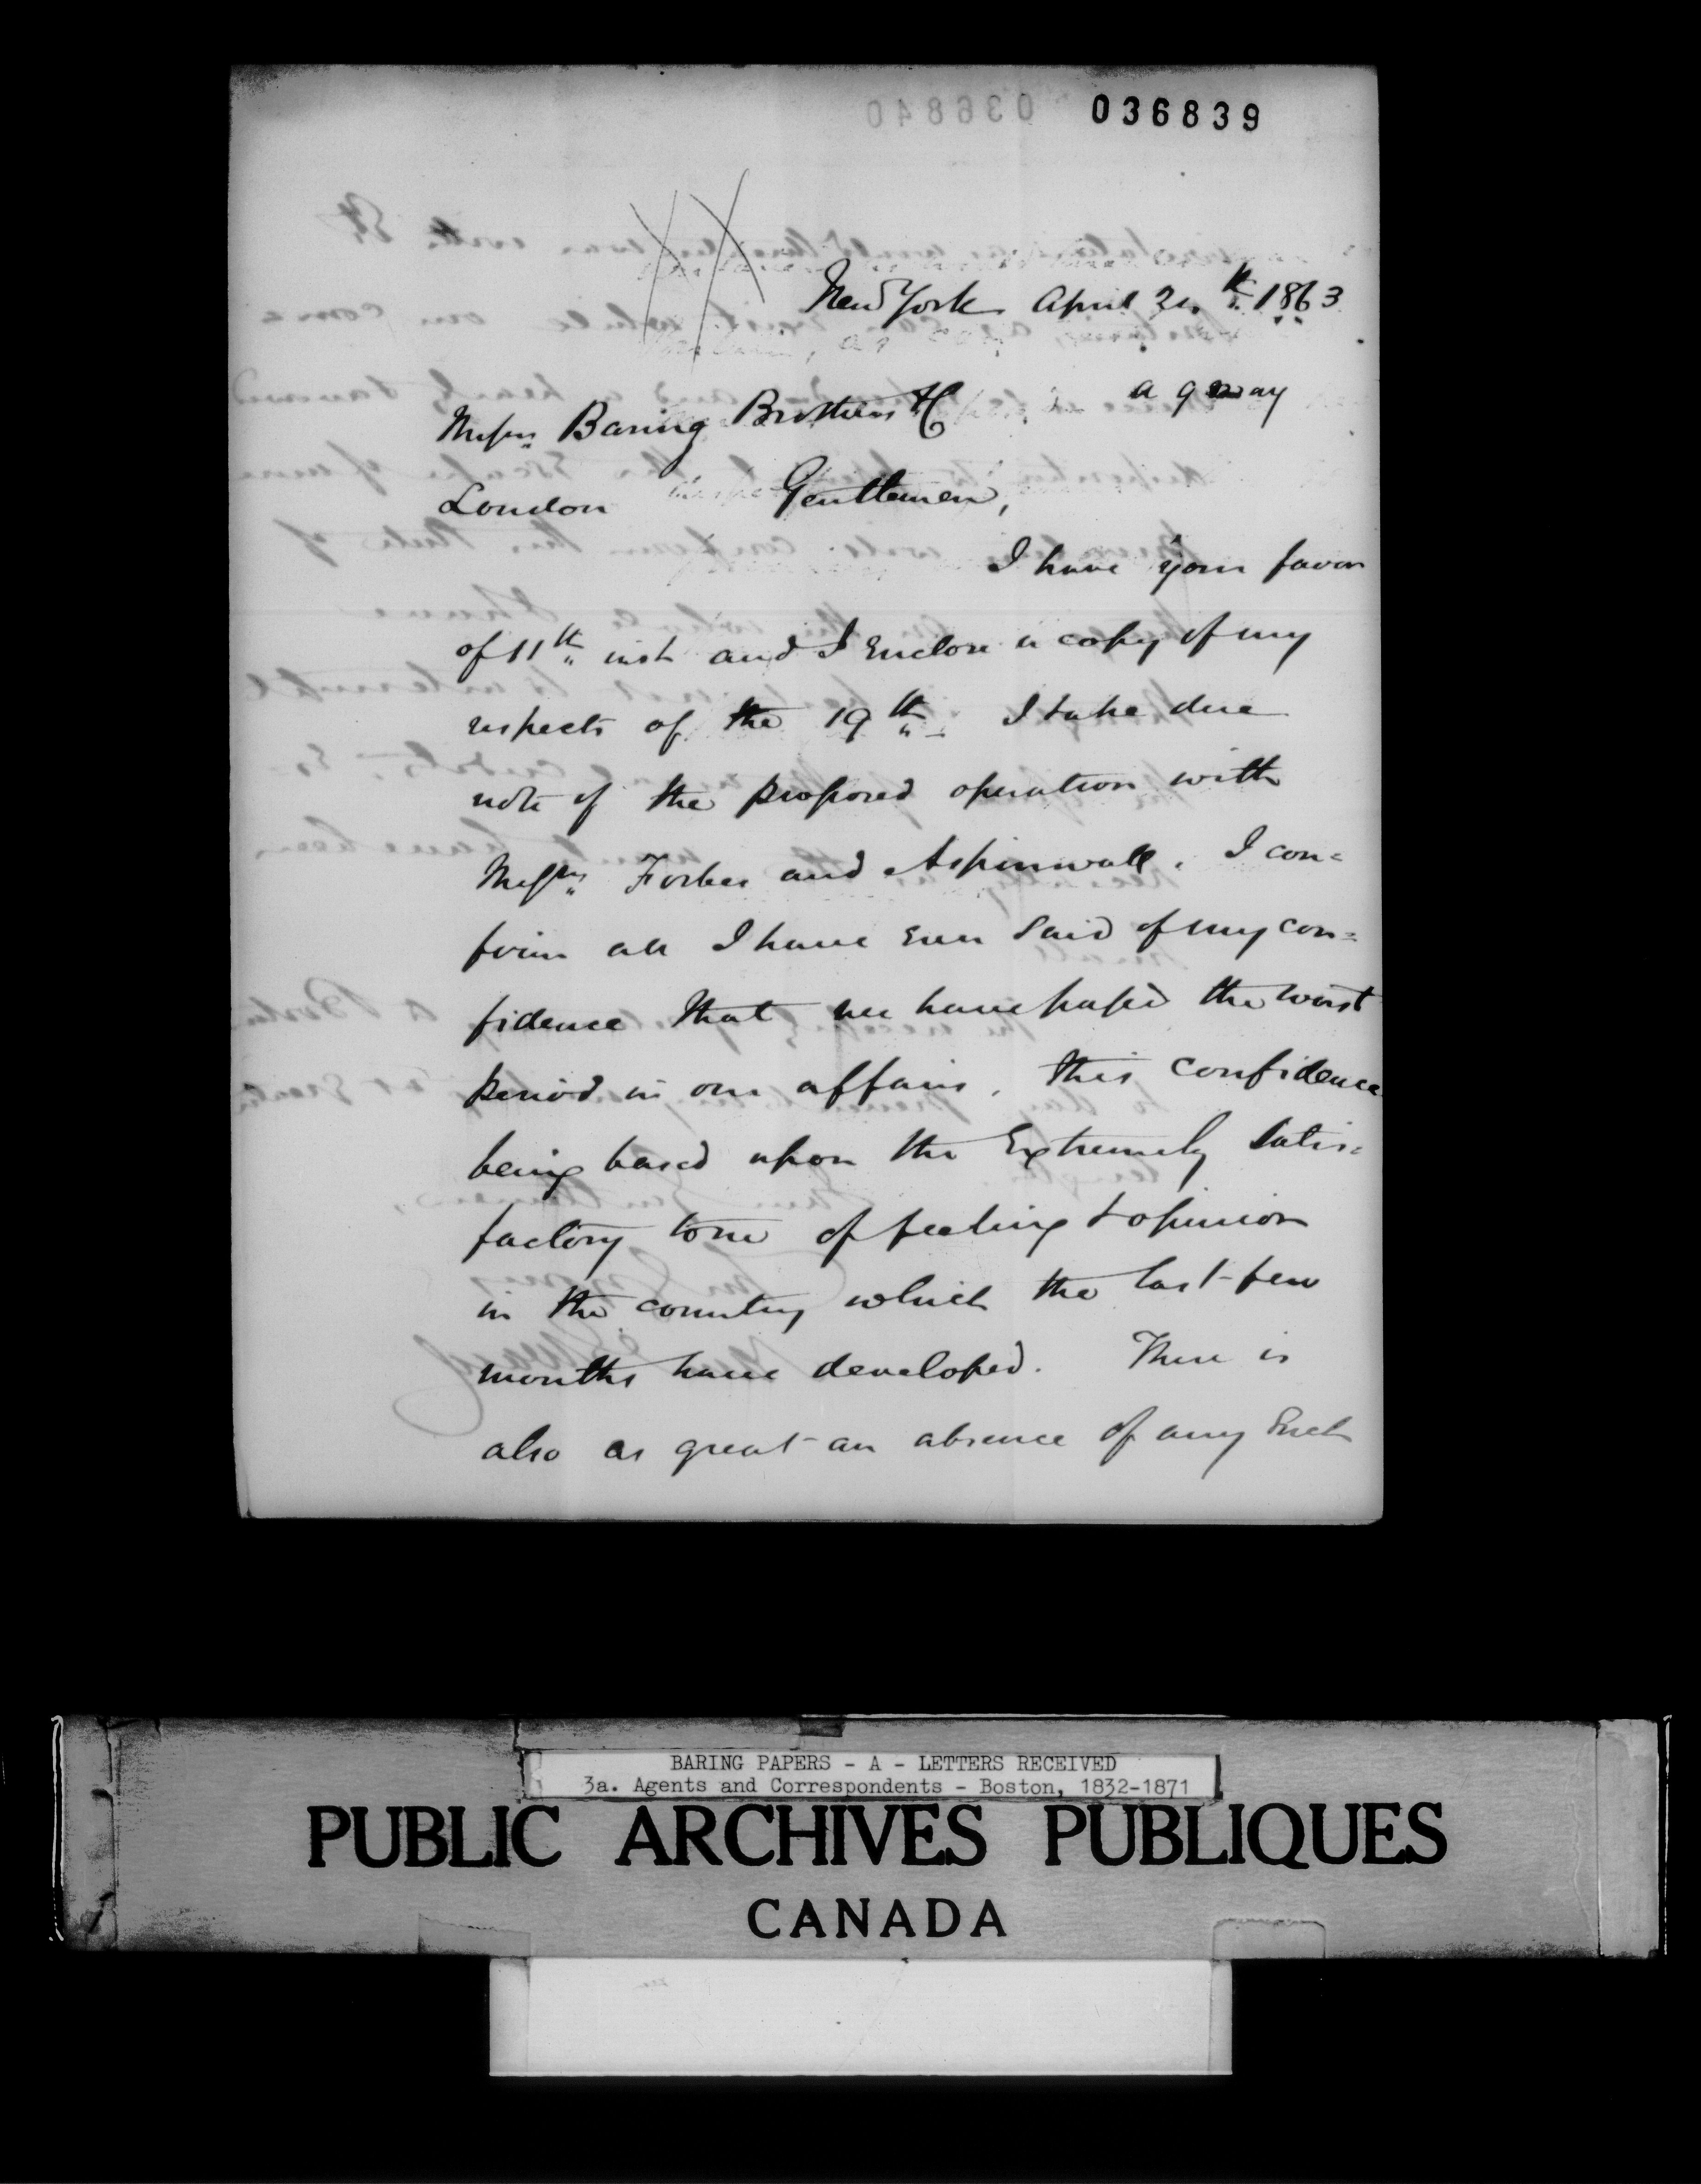 036839
New York April 21.th 1863
a 9 May
Messrs Baring Brothers & Co
London Gentlemen,
I have your favor
of 11th inst and I Enclose a copy of my
respects of the 19th. I take due
note of the proposed operation with
Messrs Forbes and Aspinwall. I con=
firm all I have Ever Said of my con=
fidence that we have passed the worst
period in our affairs. this confidence
being based upon the Extremely Satis=
factory tone of feeling & opinion
in the country which the last few
months have developed. There is
also as great an absence of any Such
BARING PAPERS - A - LETTERS RECEIVED
3a. Agents and Correspondents - Boston, 1832-1871
PUBLIC ARCHIVES PUBLIQUES
CANADA